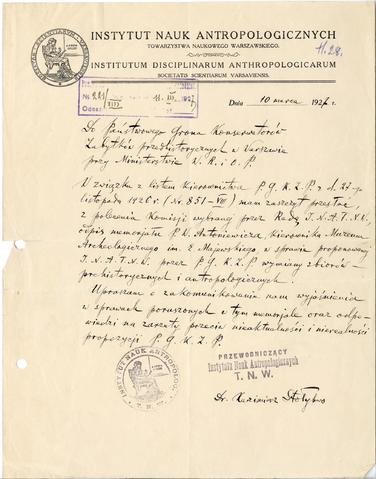 INSTYTUT NAUK ANTROPOLOGICZNYCH
TOWARZYSTWA NAUKOWEGO WARSZAWSKIEGO.
INSTITUTUM DISCIPLINARUM ANTHROPOLOGICARUM
SOCIETATIS SCIENTIARUM VARSAVIENSIS.
11.28.
Nr 221/VII 11. III. 1927
Dnia 10 marca 1927 r.
Do Państwowego Grona Konserwatorów
Zabytków przedhistorycznych w Warszawie
przy Ministerstwie W. R. i O. P.
W związku z listem Kierownictwa P. G. K. Z. P. z d. 27-go
listopada 1926 r (Nr 851-VII) mam zaszczyt przesłać,
z polecenia Komisji wybranej przez Radę I. N. A. T. N. W.,
odpis memorjału P. W. Antoniewicza, kierownika Muzeum
Archeologicznego im. E. Majewskiego w sprawie proponowanej
I. N. A. T. N. W. przez P. G. K. Z. P. wymiany zbiorów
prehistorycznych i antropologicznych.
Upraszam o zakomunikowanie nam wyjaśnienia
w sprawach poruszonych w tym memorjale oraz odpo-
wiedzi na zarzuty przeciw nieaktualności i nierealności
propozycji P. G. K. Z. P.
PRZEWODNICZĄCY
Instytutu Nauk Antropologicznych
T. N. W.
INSTYTUT NAUK ANTROPOLOG.
T. N. W.
Dr. Kazimierz Stołyhwo